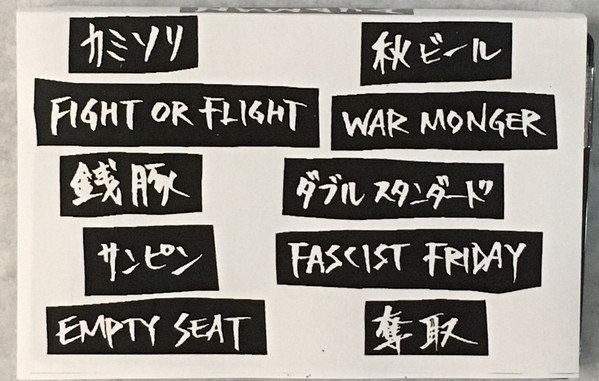 カミソリ
FIGHT OR FLIGHT
銭豚
サンピン
EMPTY SEAT
秋ビール
WAR MONGER
ダブルスタンダード
FASCIST FRIDAY
奪取